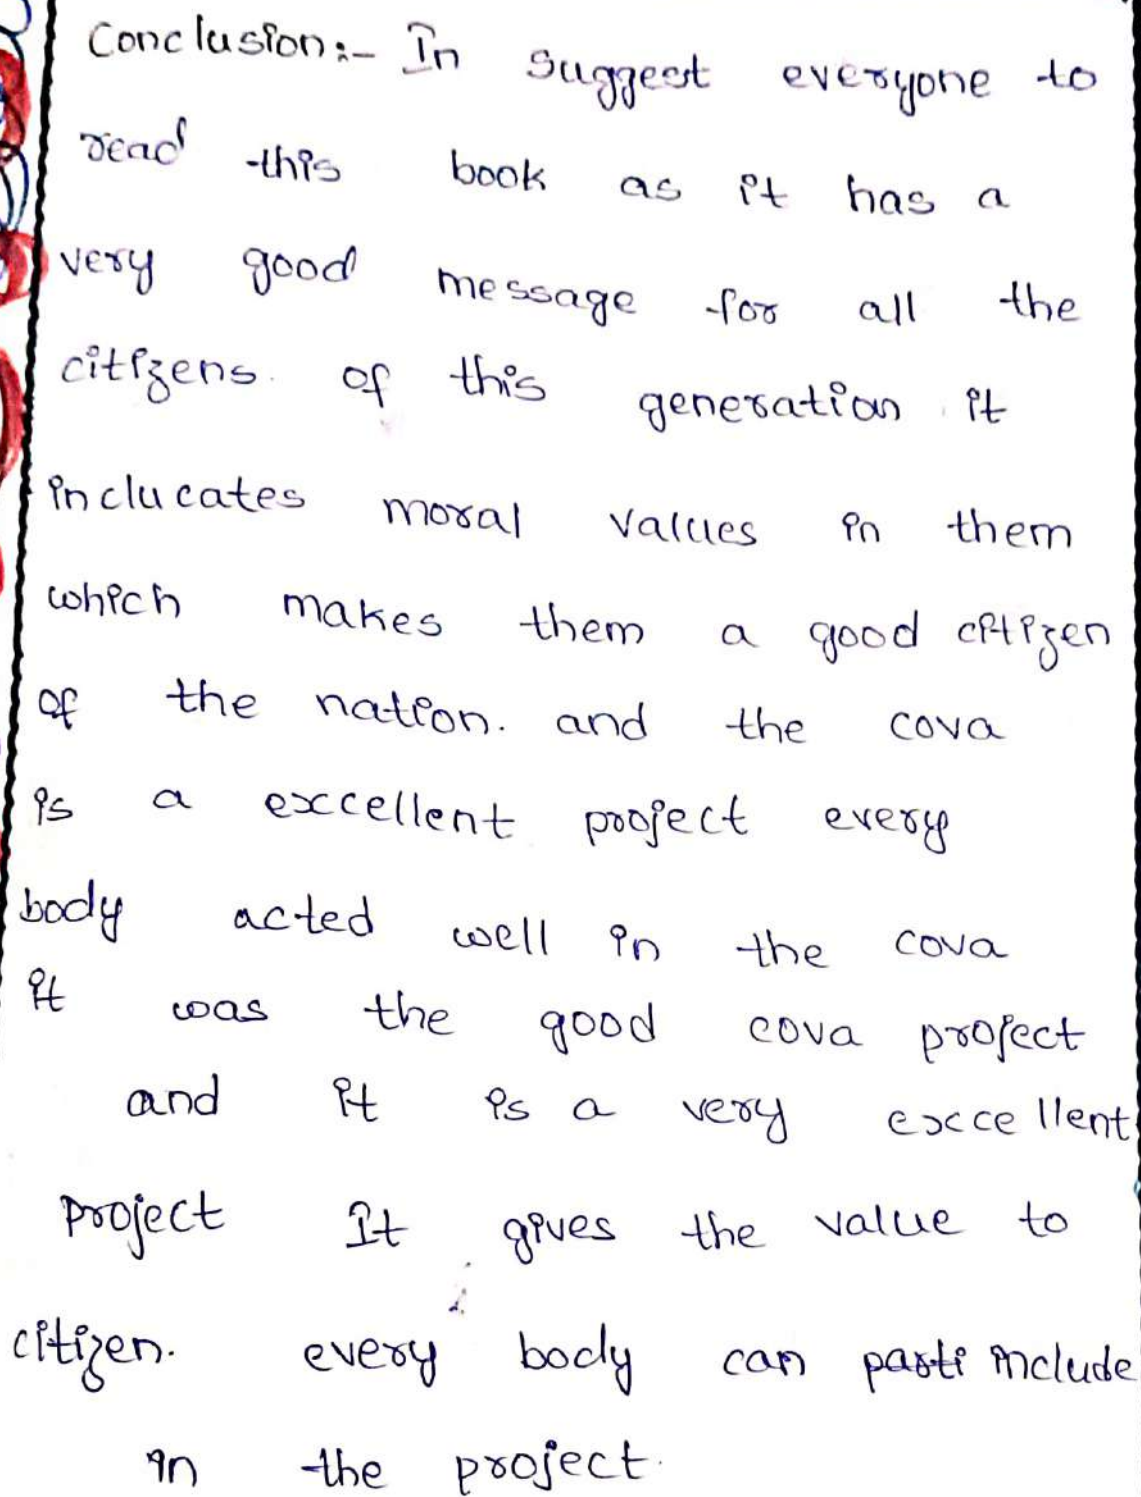 Conclusion:- In suggest everyone to
read this book as it has a
very good message for all the
citizens. of this generation it
inclucates moral values in them
which makes them a good citizen
of the nation. and the cova
is a excellent project every
body acted well in the cova
it was the good cova project
and it is a very excellent
project It gives the value to
citizen. every body can parti include
in the project.